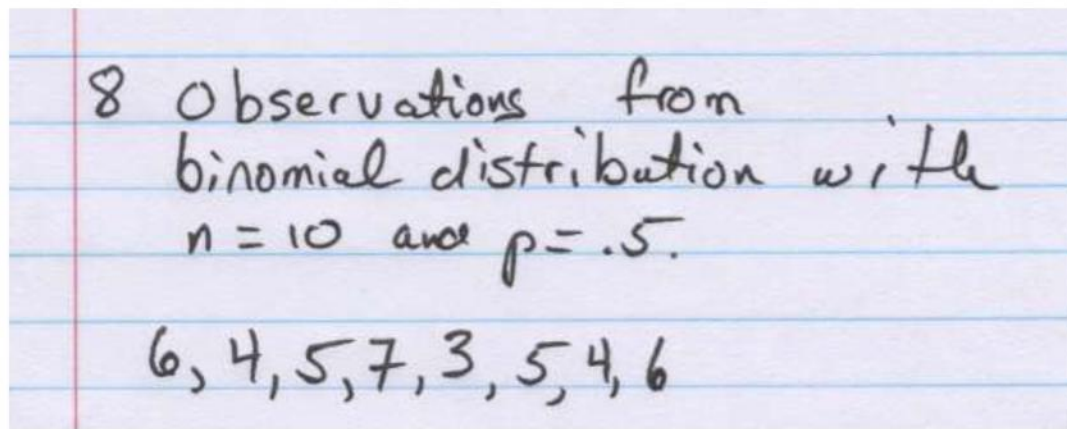 8 Observations from
binomial distribution with
n = 10 and p = .5.
6, 4, 5, 7, 3, 5, 4, 6